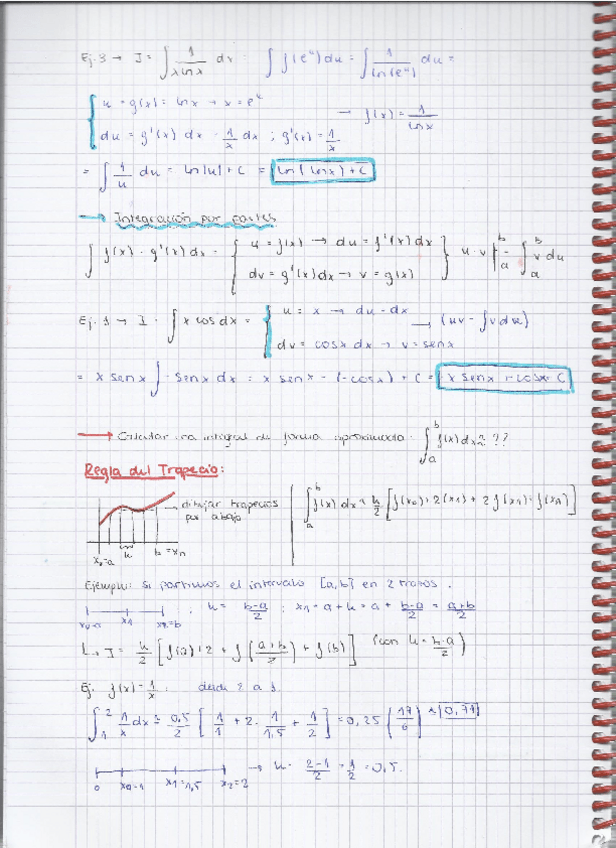 Ej. 3 → I = ∫ 1/(x lnx) dx = ∫ f(e^u) du = ∫ 1/ln(e^u) du =
u = g(x) = lnx → x = e^u → f(x) = 1/lnx
du = g'(x) dx = 1/x dx ; g'(x) = 1/x
= ∫ 1/u du = ln|u| + C = ln(lnx) + C
→ Integración por partes
∫ f(x) · g'(x) dx = { u = f(x) → du = f'(x) dx
dv = g'(x) dx → v = g(x) } u·v |_a^b - ∫_a^b v du
Ej. 1 → I = ∫ x cosx dx = { u = x → du = dx
dv = cosx dx → v = senx → (uv - ∫ v du)
= x senx ∫ - senx dx = x senx - (-cosx) + C = x senx + cosx + C
→ Calcular una integral de forma aproximada: ∫_a^b f(x) dx ≥ ??
Regla del Trapecio:
→ dibujar trapecios por abajo
∫_a^b f(x) dx ≈ h/2 [f(x0) + 2(x1) + 2 f(x1) + f(xn)]
x0=a h b=xn
Ejemplo: si partimos el intervalo [a,b] en 2 trozos.
x0=a x1 x2=b ; h = (b-a)/2 ; x1 = a + h = a + (b-a)/2 = (a+b)/2
↳ I = h/2 [f(a) + 2 · f[(a+b)/2] + f(b)] (con h = (b-a)/2)
Ej. f(x) = 1/x desde 2 a 1.
∫_1^2 1/x dx ≈ 0,5/2 [1/1 + 2 · 1/1,5 + 1/2] = 0,25 (17/6) ≈ 0,71
0 x0=1 x1=1,5 x2=2 → h = (2-1)/2 = 1/2 = 0,5.